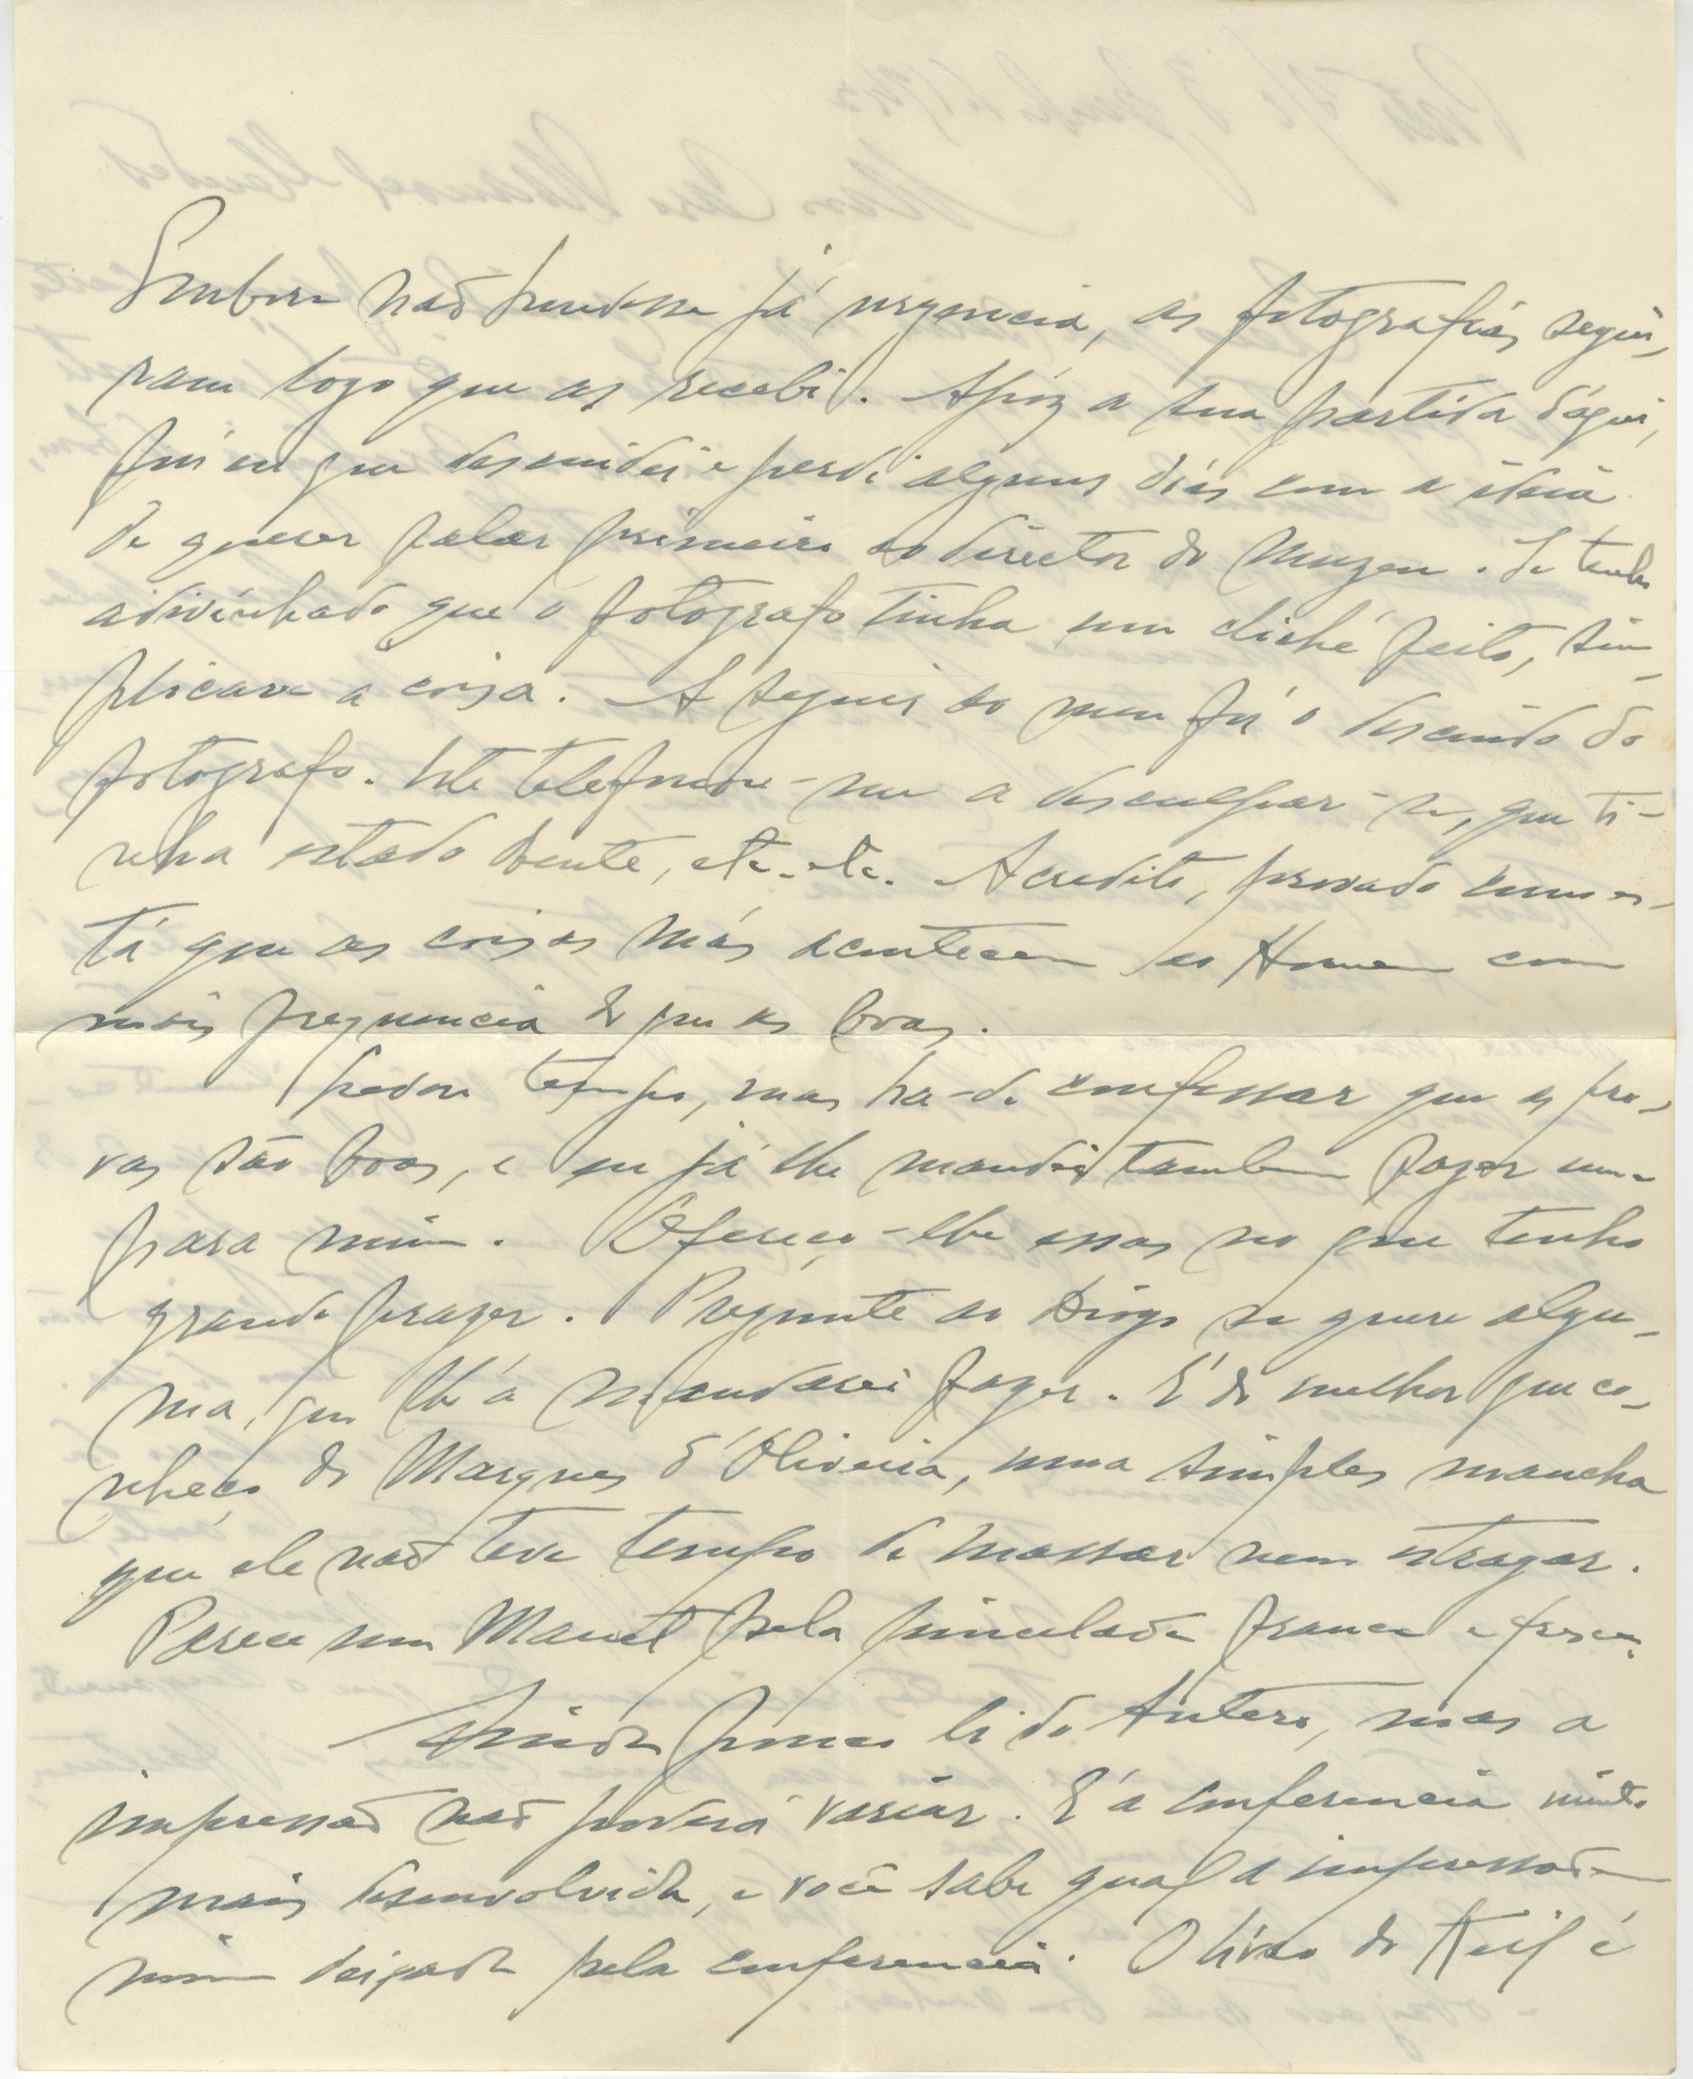 Embora não houvesse já urgencia, as fotografias segui-
ram logo que as recebi. Apóz a sua partida d'aqui,
fui eu que descuidei e perdi alguns dias com a ideia
de querer falar primeiro ao director do Muzeu. Se tenho
adivinhado que o fotografo tinha um cliché feito, sim-
plicava a coisa. A seguir ao meu foi o descuido do
fotografo. Este telefonou-me a desculpar-se, que ti-
nha estado doente, etc. etc. Acredito, provado como es-
tá que as coisas más acontecem ao Homem com
mais frequencia do que as boas.
tempo, mas ha-de confessar que as pro-
vas são boas, e eu já lhe mandei tambem fazer uma
para mim. Ofereço-lhe essas no que tenho
grande prazer. Pregunte ao Diogo se quere algu-
ma, que lh'a mandarei fazer. É do melhor que co-
nheço do Marques d'Oliveira, uma simples mancha
que ele não teve tempo de massar nem estragar.
Parece um Manet pela pincelada franca e fresca.
Ainda pouco li do Antero, mas a
impressão não poderá variar. É a conferencia muito
mais desenvolvida, e você sabe qual a impressão em
mim deixada pela conferencia. O livro do Keil é